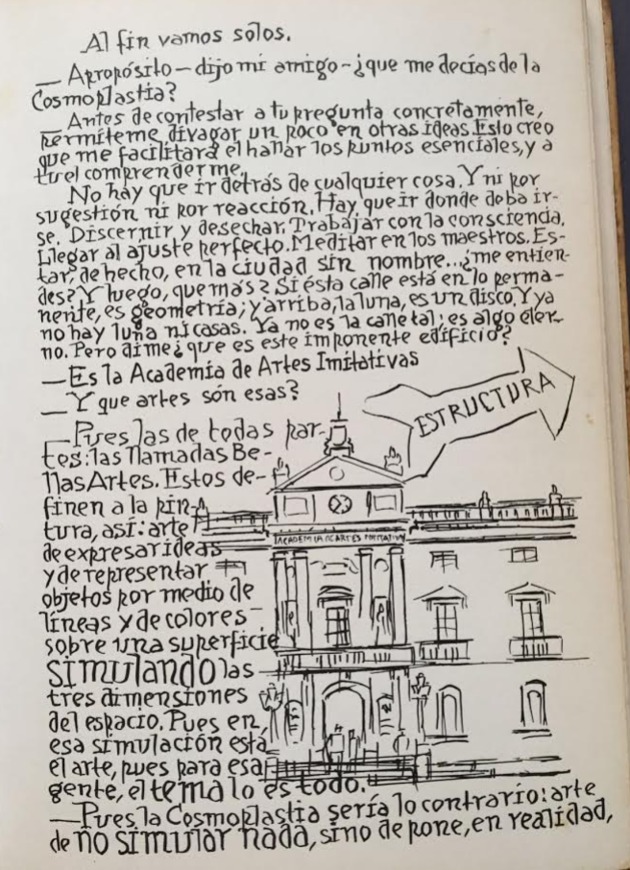 Al fin vamos solos.
— Apropósito — dijo mi amigo — ¿que me decías de la
Cosmoplastia?
Antes de contestar a tu pregunta concretamente,
permíteme divagar un poco en otras ideas. Esto creo
que me facilitará el hallar los puntos esenciales, y a
tu el comprenderme.
No hay que ir detrás de cualquier cosa. Y ni por
sugestión ni por reacción. Hay que ir donde deba ir-
se. Discernir y desechar. Trabajar con la consciencia.
Llegar al ajuste perfecto. Meditar en los maestros. Es-
tar, de hecho, en la ciudad sin nombre...¿me entien-
des? Y luego, que más? Si ésta calle está en lo perma-
nente, es geometría; y arriba, la luna, es un disco. Y ya
no hay luna ni casas. Ya no es la calle tal; es algo eter-
no. Pero dime ¿ que es este imponente edificio?
— Es la Academia de Artes Imitativas
— Y que artes són esas?
ESTRUCTURA
— Pues las de todas par-
tes: las llamadas Be-
llas Artes. Estos de-
finen a la pin-
tura, así: arte
de expresar ideas
y de representar
objetos por medio de
líneas y de colores
sobre una superficie
SIMULANDO las
tres dimensiones
del espacio. Pues en
esa simulación está
el arte, pues para esa
gente, el tema lo es todo.
ACADEMIA DE ARTES
— Pues la Cosmoplastia sería lo contrario: arte
de no simular nada, sino de pone, en realidad,